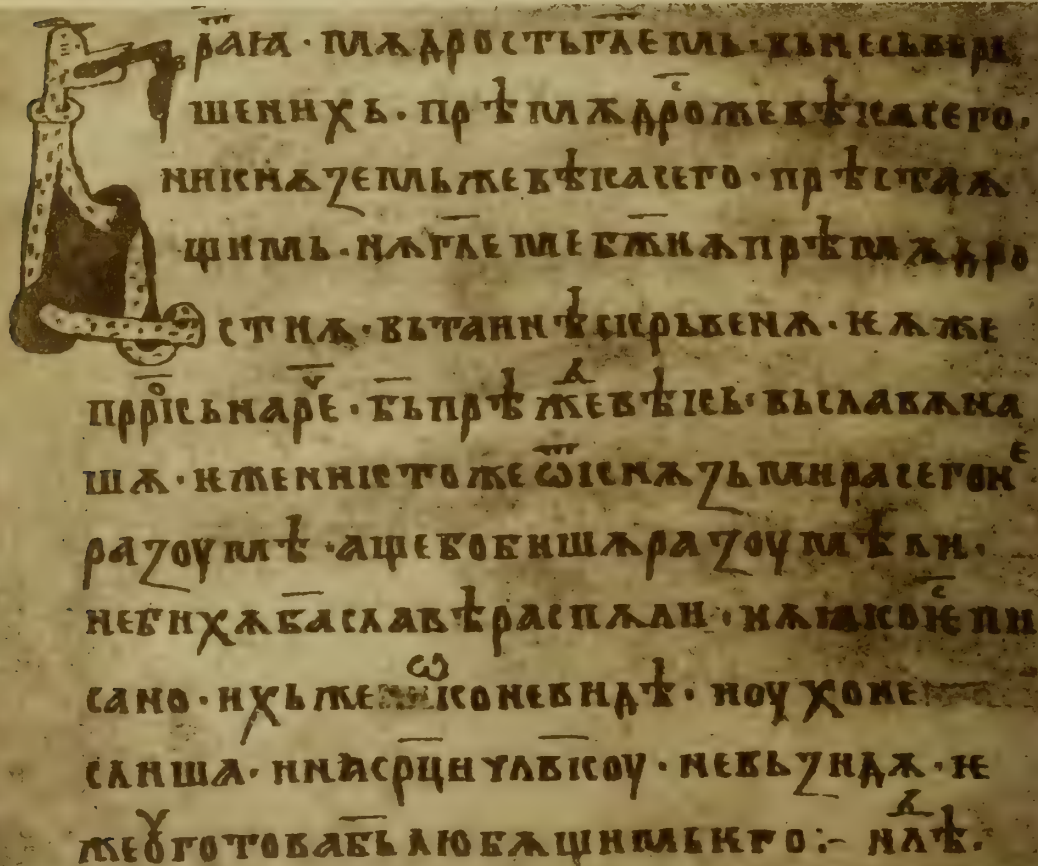 рⷮаꙗ · мѫдростьгл҃емь · вьнесьврь
шенихь · прѣмѫдроⷭжевѣкасего ·
никнѧꙁемьжевѣкасего · прѣстаѫ
щимь · нѫгл҃емеб҃жиѫпрѣмѫдро
стиѫ · вьтаинѣскрьвенѫ · ѥѫже
прⷪрⷪкьнареⷱ · б҃ьпрѣжⷣевѣкь · вьславѫна
шѫ · ѥженнктожеѿкнѧꙁьмирасегоне
раꙁоумѣ · ащебобишѧраꙁоумѣли ·
небихѫб҃аславѣраспѧли · нѫꙗкоѥⷭпи
сано · ихьже ѡконевидѣ · ноухоне
слиша · нинаср҃цичл҃вкоу · невьꙁидѫ · ѥ
жеꙋготоваб҃ьлюбѧщимьѥго :- нлⷣѣ ·